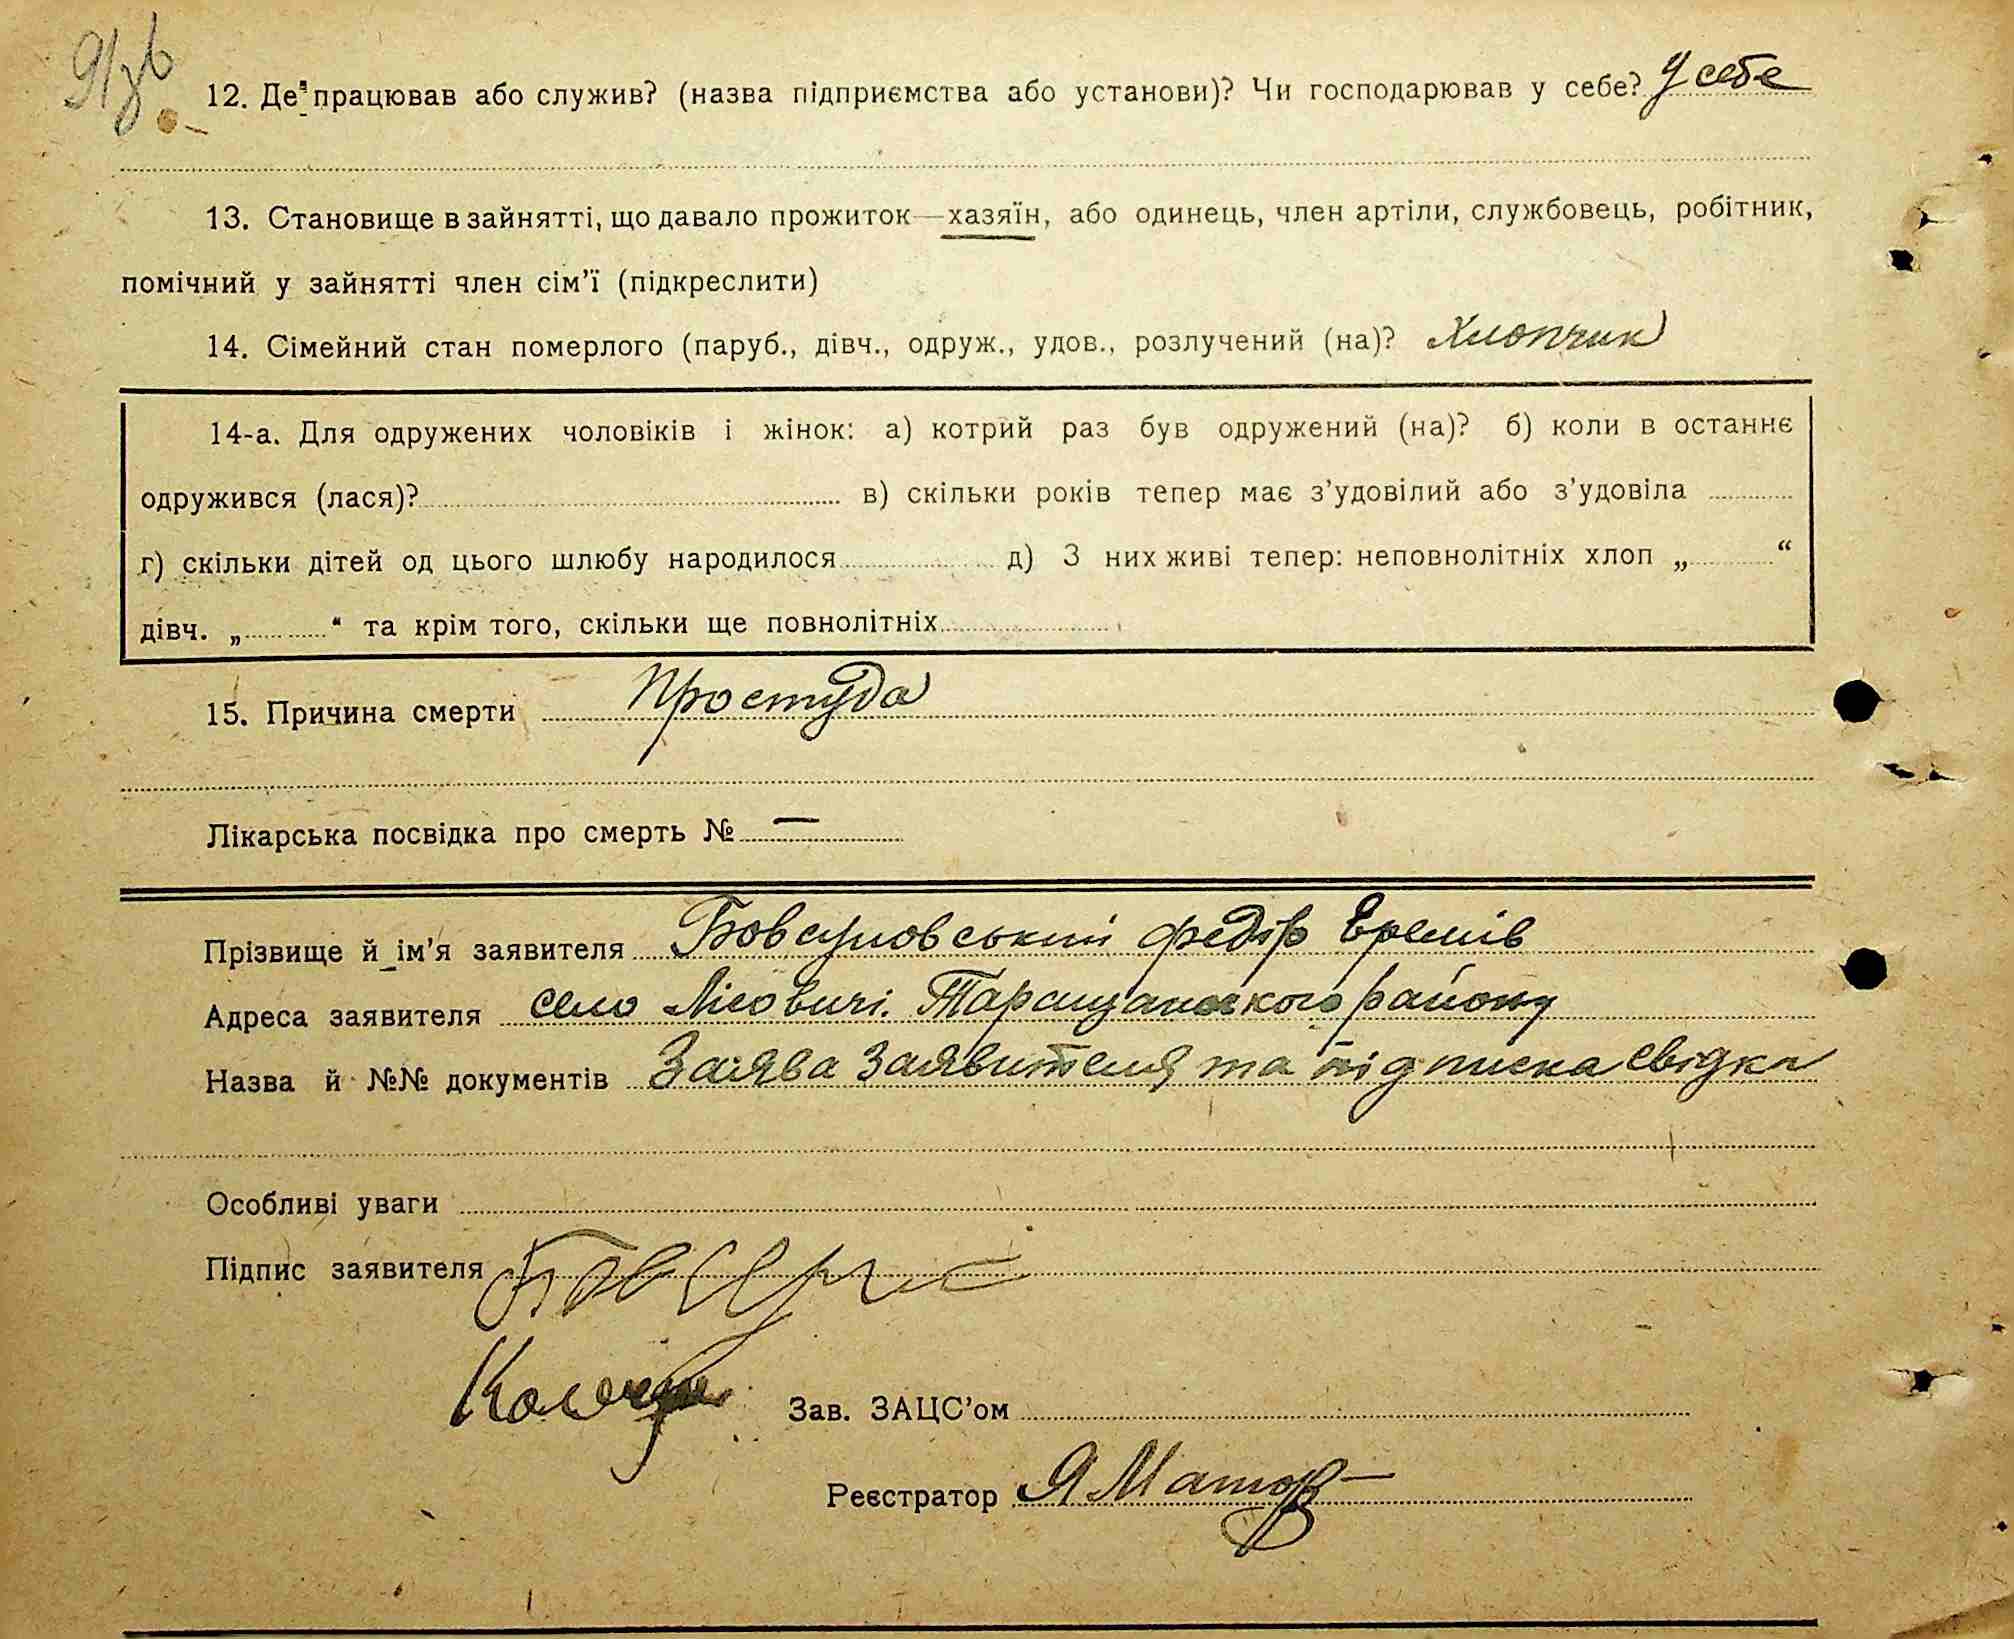 12. Де працював або служив? (назва підприємства або установи)? Чи господарював у себе? У себе
13. Становище в зайнятті, що давало прожиток—хазяїн, або одинець, член артіли, службовець, робітник,
помічний у зайнятті член сім’ї (підкреслити)
14. Сімейний стан померлого (паруб., дівч., одруж., удов., розлучений (на)? Хлопчик
14-а. Для одружених чоловіків і жінок: а) котрий раз був одружений (на)? б) коли в останнє
одружився (лася)? в) скільки років тепер має з’удовілий або з’удовіла
г) скільки дітей од цього шлюбу народилося д) З них живі тепер: неповнолітніх хлоп „ “
дівч. „ “ та крім того, скільки ще повнолітніх
15. Причина смерти Простуда
Лікарська посвідка про смерть № —
Прізвище й ім’я заявителя Бовсуновський Федір Еремів
Адреса заявителя село Лісовичі. Таращанського району
Назва й №№ документів Заява Заявителя та підписка свідка
Особливі уваги
Підпис заявителя
Зав. ЗАЦС’ом
Реєстратор Я